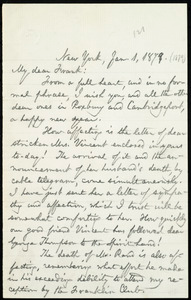 121
New York, Jan. 1, 1879. (1879)
My dear Frank:
From a full heart, and in no for-
mal phrase, I wish you and all the other
dear ones in Roxbury and Cambridgeport,
a happy new year.
How affecting is the letter of dear
stricken Mrs. Vincent enclosed in yours
to-day! The arrival of it and the an-
nouncement of her husband's death, by
cable telegram came simultaneously.
I have just sent her a letter of sympa-
thy and affection, which I trust will be
somewhat comforting to her. How quickly
our good friend Vincent has followed dear
George Thompson to the spirit-land!
The death of Mr. is also af-
fecting, remembering what effort he made
in his seeming debility to attend my re-
ception by the Franklin Club.